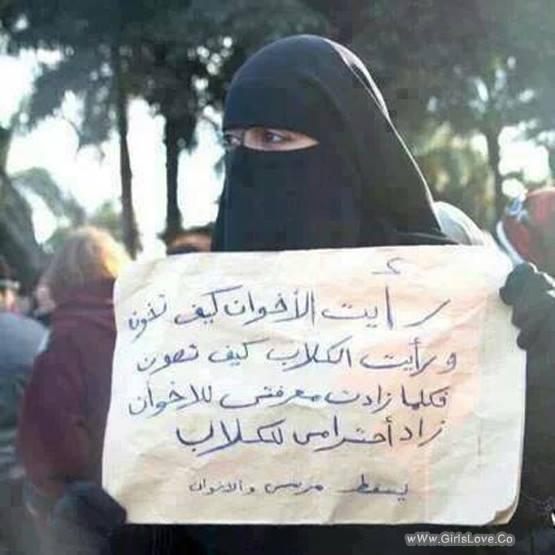 رأيت الأخوان كيف تخون
ورأيت الكلاب كيف تصون
فكلما زادت معرفتى للاخوان
زاد أحترامى للكلاب
يسقط مرسى والاخوان
www.GirlsLove.Co